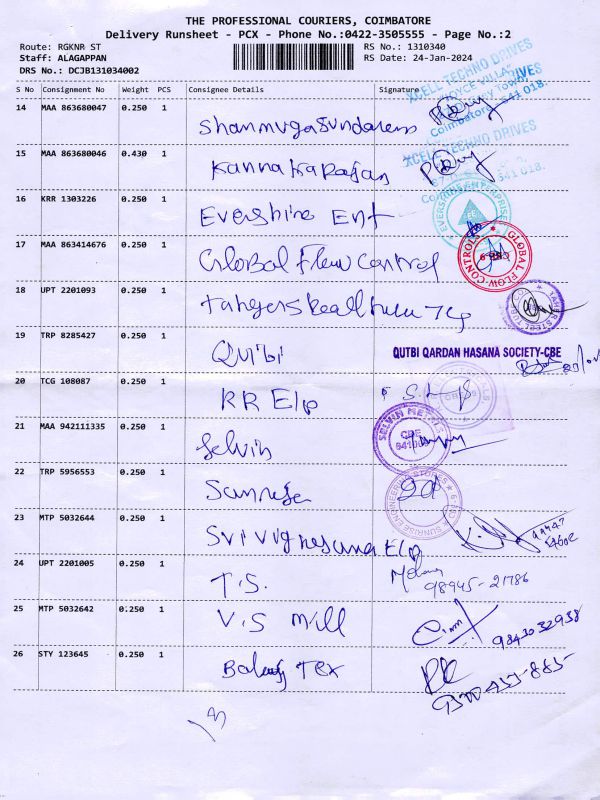 THE PROFESSIONAL COURIERS, COIMBATORE
Delivery Runsheet - PCX - Phone No.:0422-3505555 - Page No.:2
Route: RGKNR ST
Staff: ALAGAPPAN
DRS No.: DCJB131034002
RS No.: 1310340
RS Date: 24-Jan-2024
S No Consignment No Weight PCS Consignee Details Signature
14 MAA 863680047 0.250 1
Shanmugasundaram
XCELL TECHNO DRIVES
Coimbatore - 641 018.
15 MAA 863680046 0.430 1
Kannakarajan
XCELL TECHNO DRIVES
641 018.
16 KRR 1303226 0.250 1
Evershine Ent
EVERSHINE ENTERPRISE
17 MAA 863414676 0.250 1
Global Flow Control
GLOBAL FLOW CONTROL
18 UPT 2201093 0.250 1
19 TRP 8285427 0.250 1
Qutbi
QUTBI QARDAN HASANA SOCIETY-CBE
20 TCG 108087 0.250 1
RR Elp
21 MAA 942111335 0.250 1
Selvin
SELVIN METALS
CBE
22 TRP 5956553 0.250 1
Sunrise
SUNRISE ENGINEERING STORES
23 MTP 5032644 0.250 1
Sri Vigneswara Elp
24 UPT 2201005 0.250 1
T.S.
98945-21786
25 MTP 5032642 0.250 1
V.S Mill
9843032938
26 STY 123645 0.250 1
Tex
13